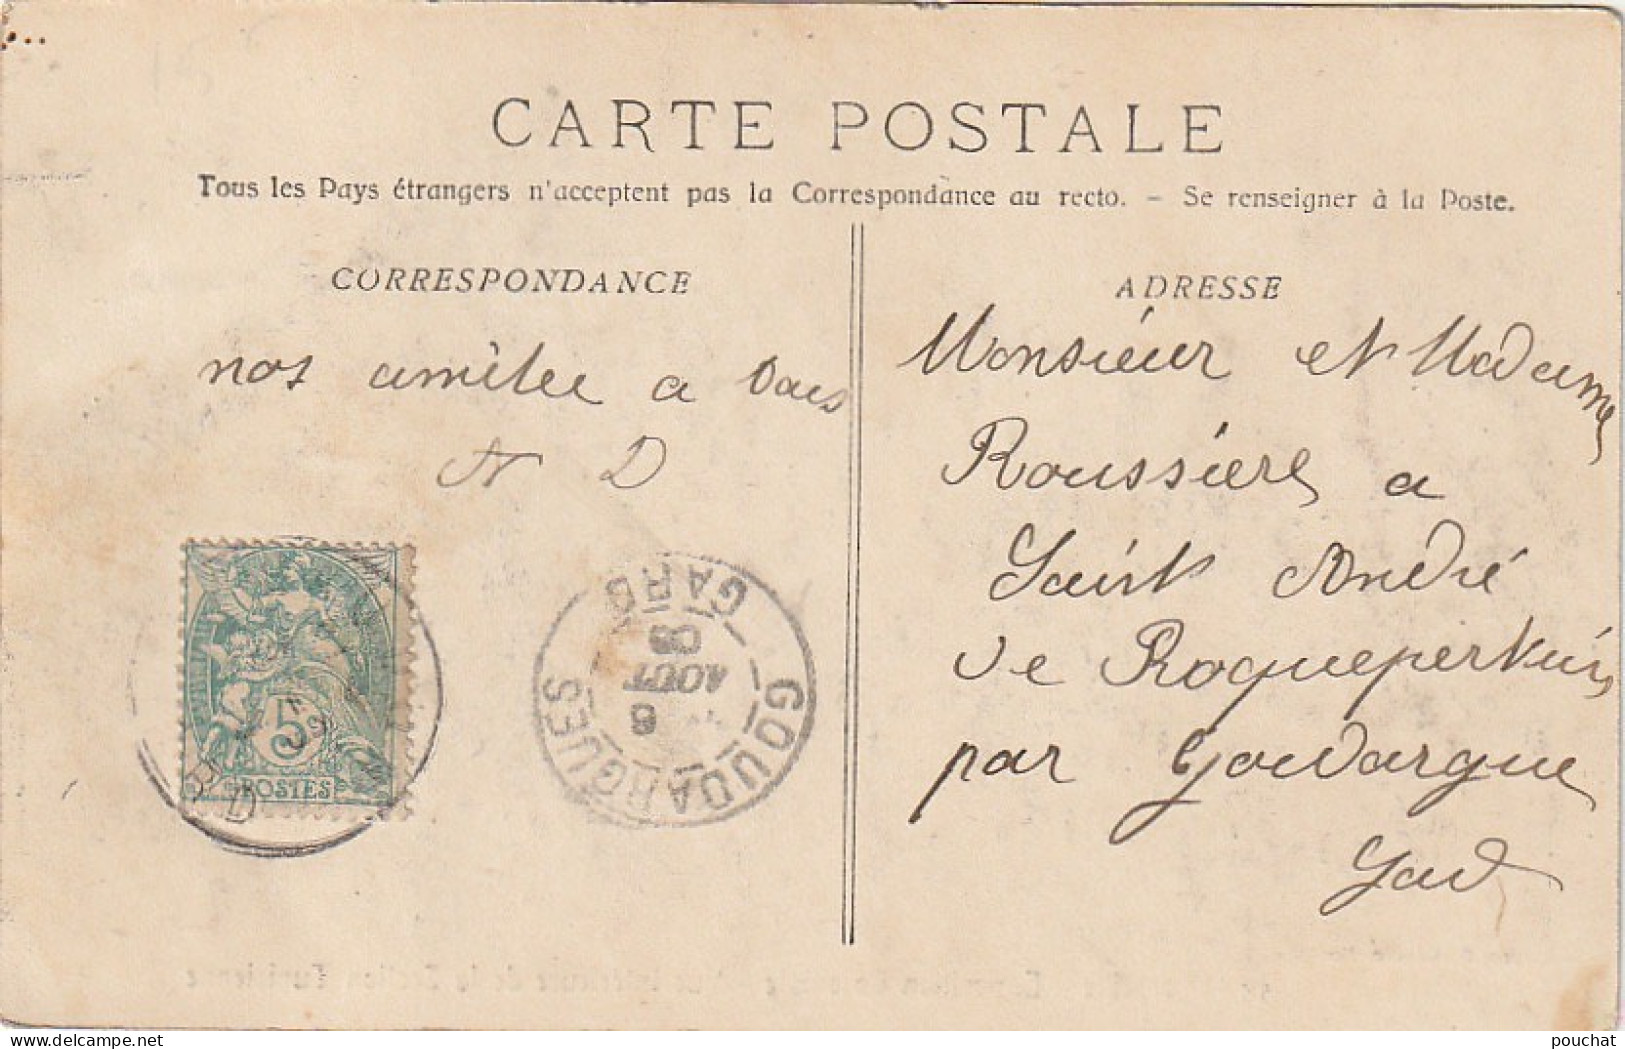 CARTE POSTALE
Tous les Pays étrangers n'acceptent pas la Correspondance au recto. – Se renseigner à la Poste.
CORRESPONDANCE
nos amitee a Vous
N D
5
POSTES
GOUDARGUES
GARD
8
AOUT
06
ADRESSE
Monsieur et Madame
Roussière a
Saint André
de Roquepertuis
par Goudargue
Gard
delcampe.net
pouchat